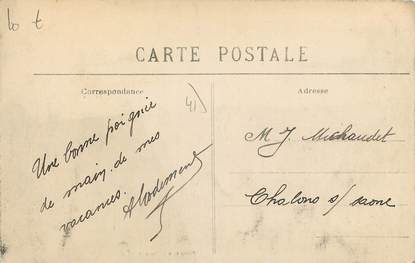 bo t
CARTE POSTALE
Correspondance
Adresse
41)
Une bonne poignée
de main de mes
vacances.
M J. Michaudet
Chalons s/ saone